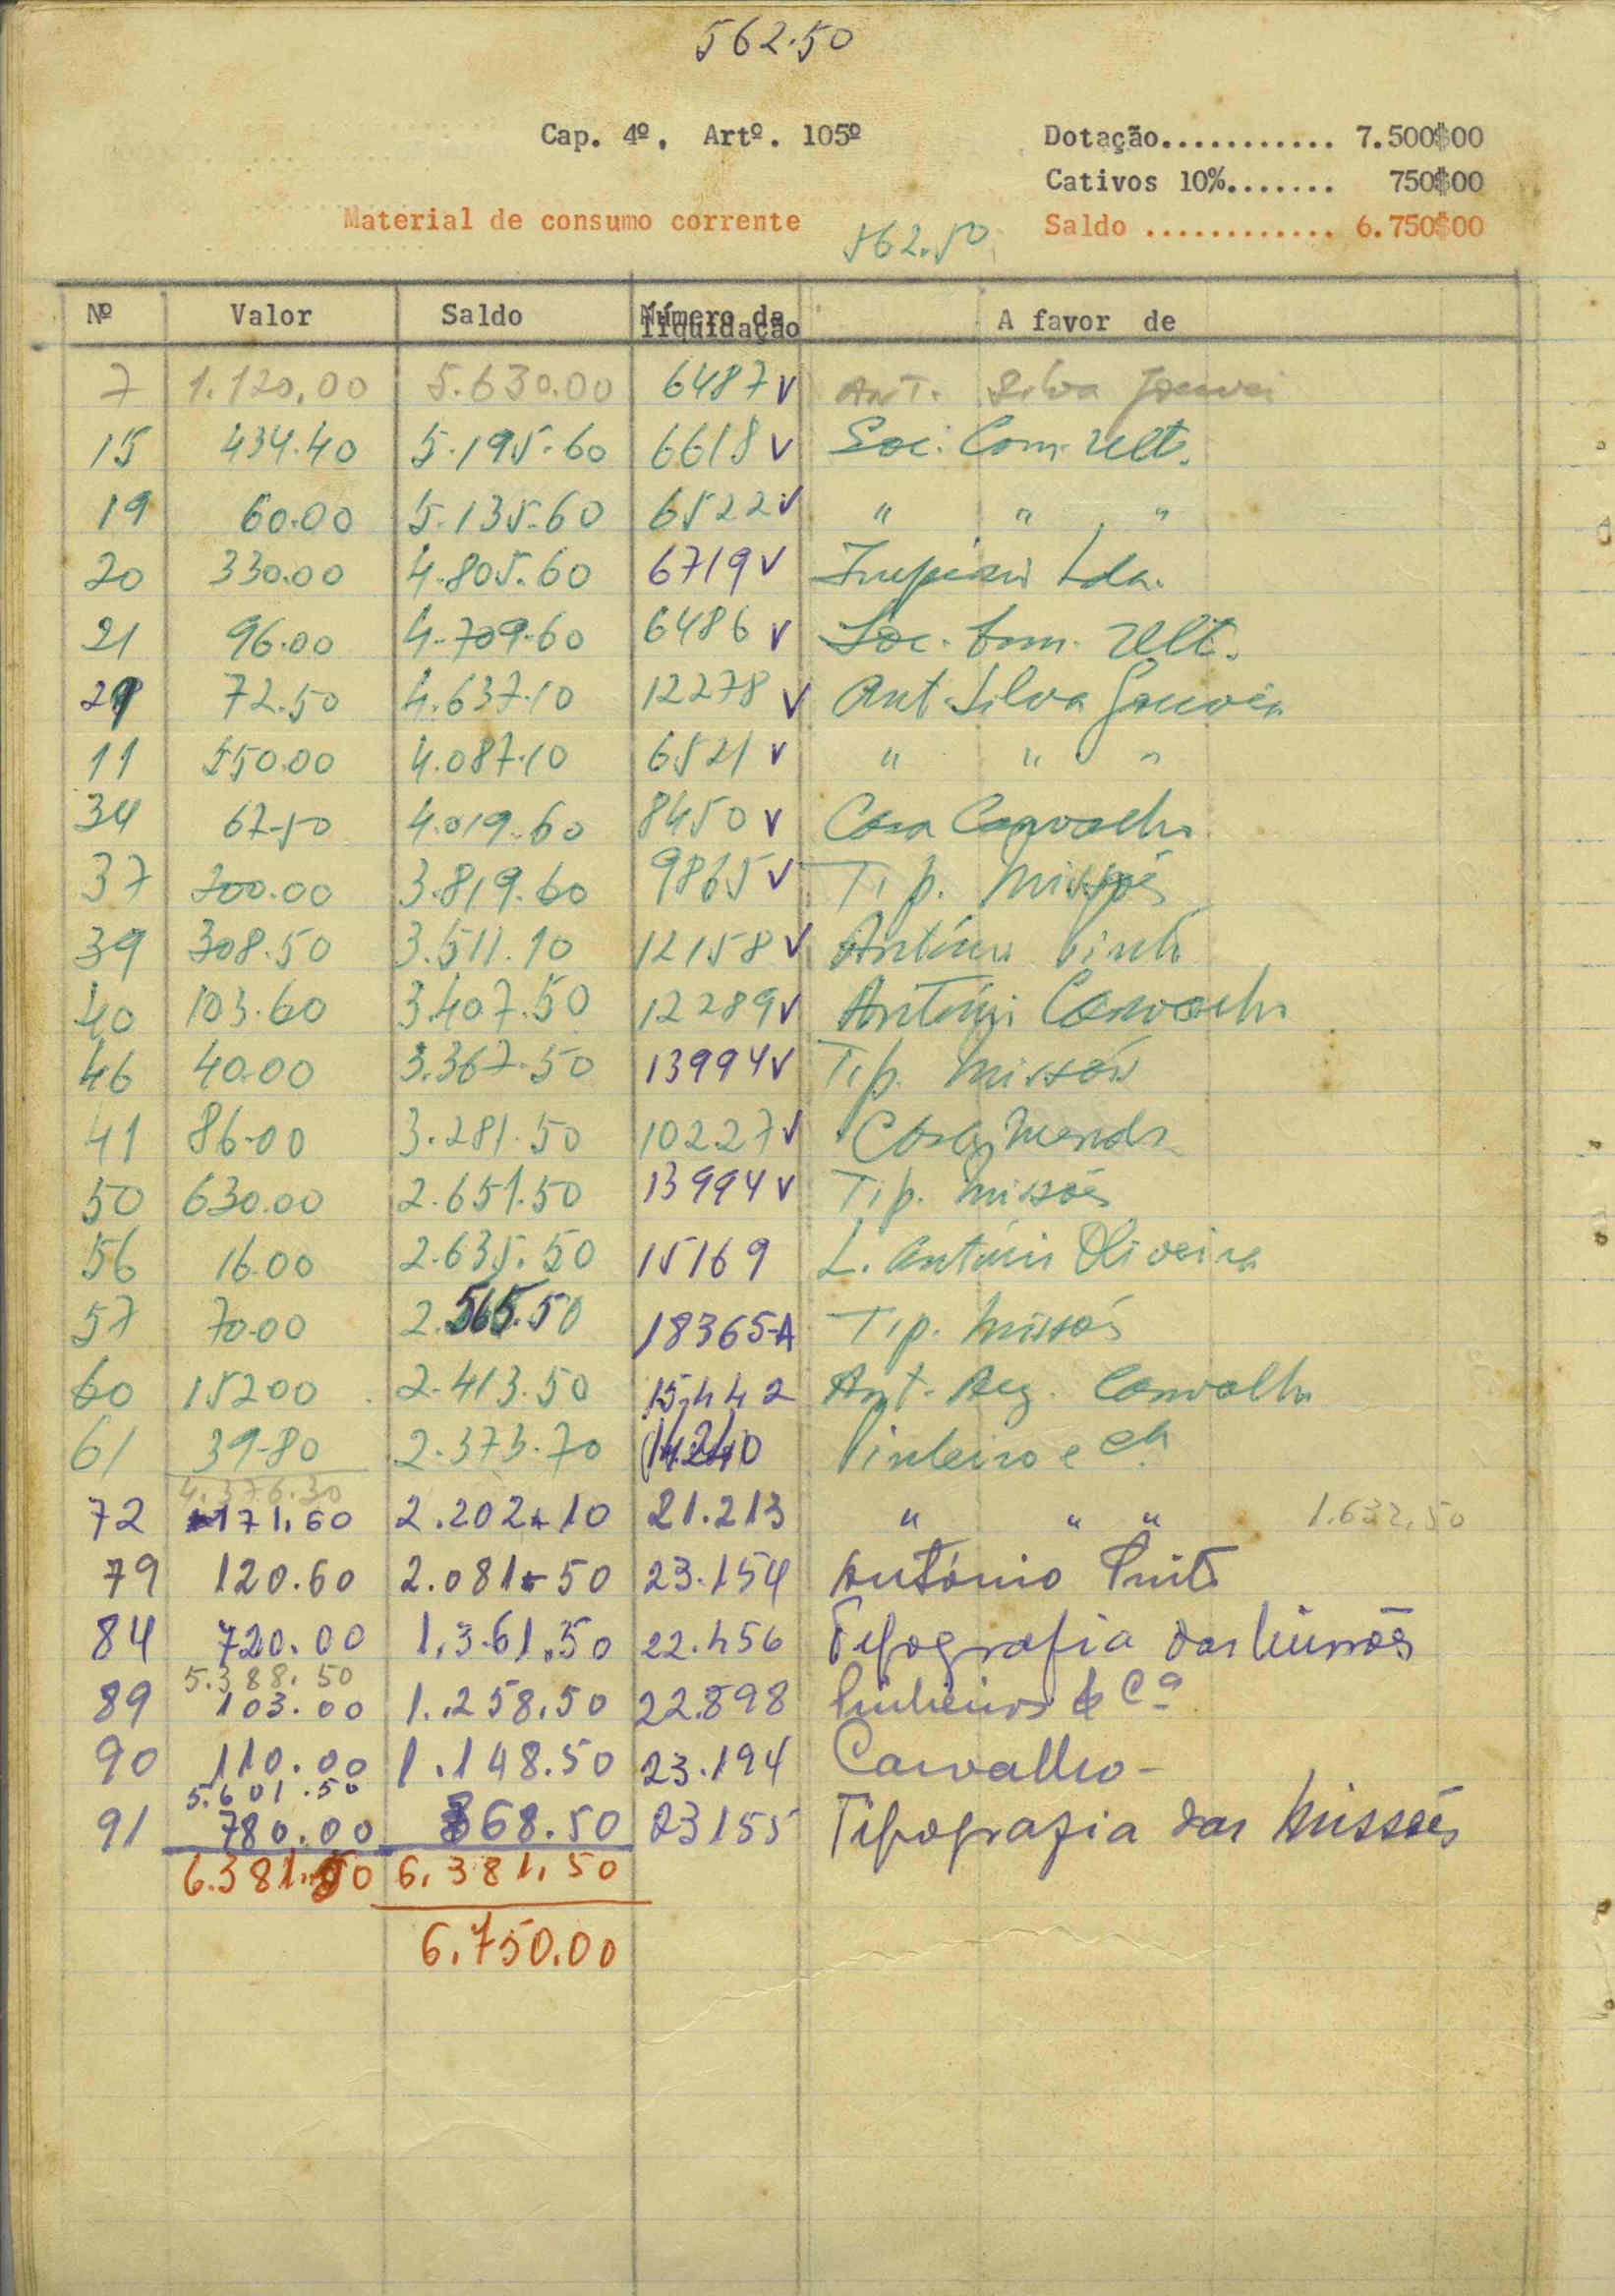 562.50
Cap. 4º. Artº. 105º
Dotação........... 7.500$00
Cativos 10%....... 750$00
Material de consumo corrente
562.50
Saldo ............ 6.750$00
Nº Valor Saldo Número da liquidação A favor de
7 1.120,00 5.630.00 6487 v Ant. Silva Gouveia
15 434.40 5.195.60 6618 v Soc. Com. Ult.
19 60.00 5.135.60 6522 v " " "
20 330.00 4.805.60 6719 v Lda.
21 96.00 4.709.60 6486 v Soc. Com. Ult.
29 72.50 4.637.10 12278 v Ant. Silva Gouveia
11 550.00 4.087.10 6521 v " " "
34 67.50 4.019.60 8450 v Casa Carvalho
37 200.00 3.819.60 9865 v Tip. Missões
39 308.50 3.511.10 12158 v António Pinto
40 103.60 3.407.50 12289 v António Carvalho
46 40.00 3.367.50 13994 v Tip. Missões
41 86.00 3.281.50 10227 v
50 630.00 2.651.50 13994 v Tip. Missões
56 16.00 2.635.50 15169 L. António Oliveira
57 70.00 2.565.50 18365-A Tip. Missões
60 15200 2.413.50 15.442 Ant. Aug. Carvalho
61 39.80 2.373.70 Pinheiro e Cª
4.376.30
72 171.60 2.202.10 21.213 " " " 1.632,50
79 120.60 2.081.50 23.154 António Pinto
84 720.00 1.361.50 22.456 Tipografia das Missões
5.388.50
89 103.00 1.258.50 22.898 Pinheiros & Cª
90 110.00 1.148.50 23.194 Carvalho -
5.601.50
91 780.00 368.50 23155 Tipografia das Missões
6.381.50 6.381,50
6.750.00